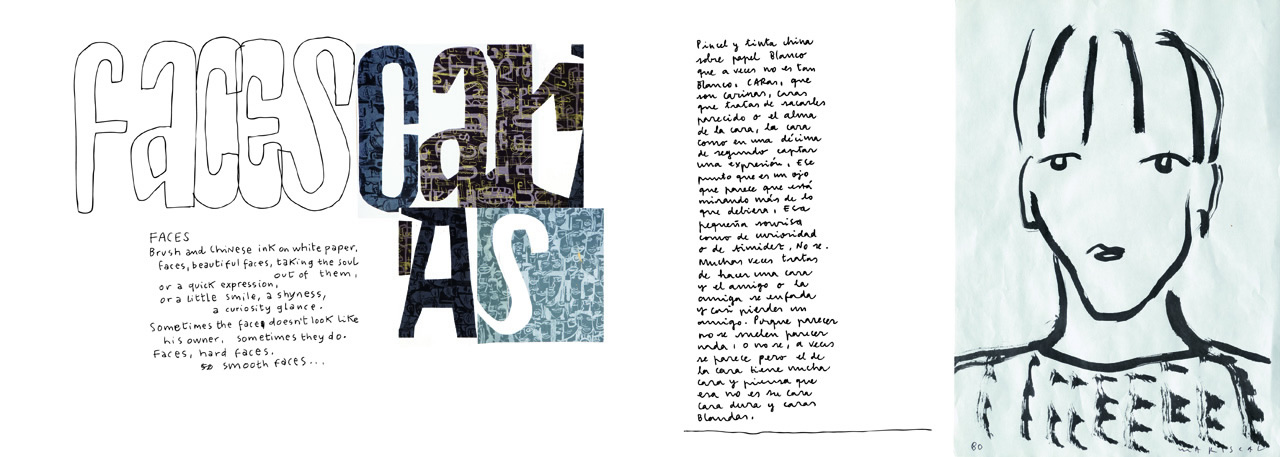 FACES
CAR
AS
FACES
Brush and Chinese ink on white paper,
faces, beautiful faces, taking the soul
out of them,
or a quick expression,
or a little smile, a shyness,
a curiosity glance.
Sometimes the face doesn't look like
his owner, sometimes they do.
Faces, hard faces,
smooth faces...
Pincel y tinta china
sobre papel Blanco
que a veces no es tan
Blanco. CARAS, que
son carinas, caras
que tratas de sacarles
parecido o el alma
de la cara, la cara
como en una décima
de segundo captar
una expresión, Ese
punto que es un ojo
que parece que está
mirando más de lo
que debiera, Esa
pequeña sonrisa
como de curiosidad
o de timidez, No se.
Muchas veces tratas
de hacer una cara
y el amigo o la
amiga se enfada
y casi pierdes un
amigo. Porque parecer
no se suelen parecer
nada, o no se, a veces
se parece pero el de
la cara tiene mucha
cara y piensa que
esa no es su cara
Cara dura y caras
Blandas.
80
MARISCAL